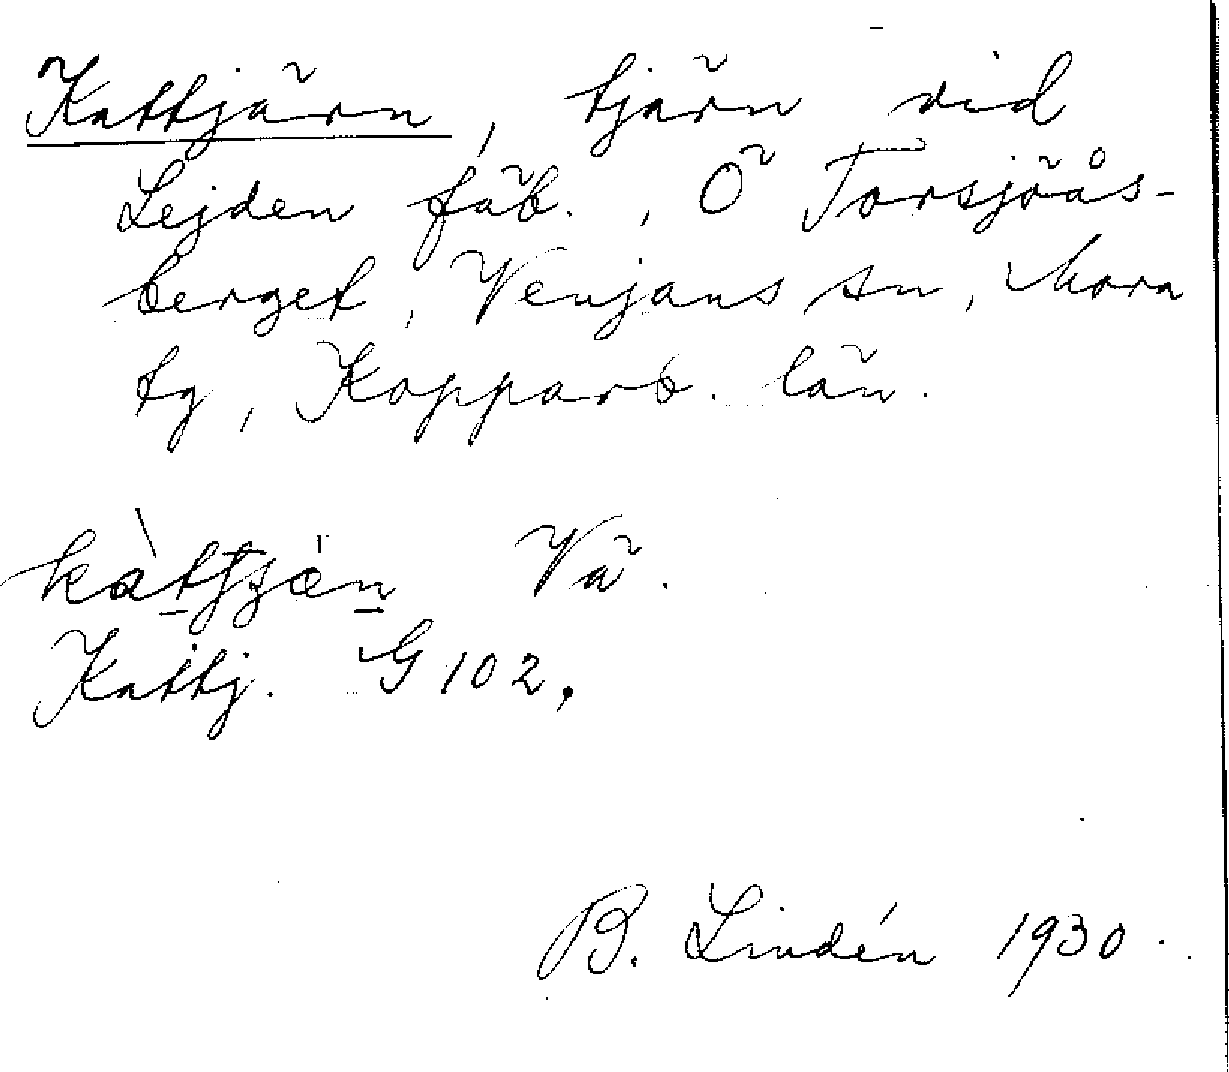 Kattjärn, tjärn vid
Lejden fäb., Ö Torsjöås-
berget, Venjans sn, Mora
tg, Kopparb. län.
Vä.
Kattj. G 102.
B. Lindén 1930.